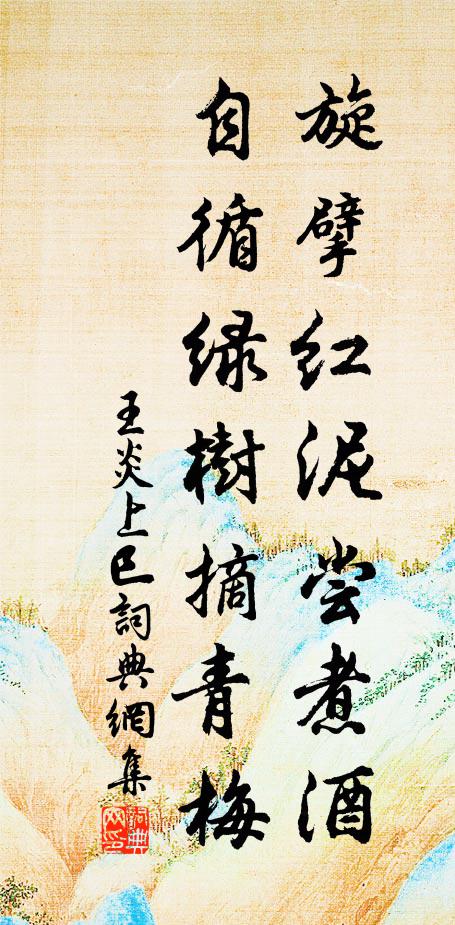 旋擘红泥尝煮酒
自循绿樹摘青梅
王炎上巳詞典網集
詞典網印